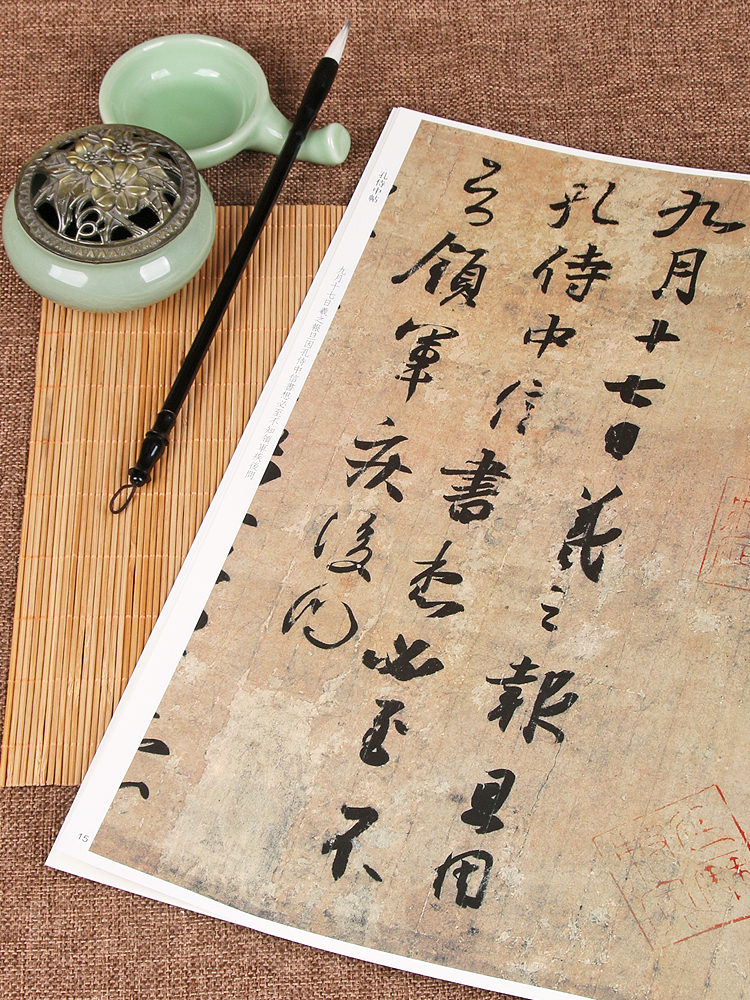 九月十七日羲之報且因
孔侍中信書想必至不
知領軍疾後問
孔侍中帖
九月十七日羲之報旦因孔侍中信書想必至不知領軍疾後問
15